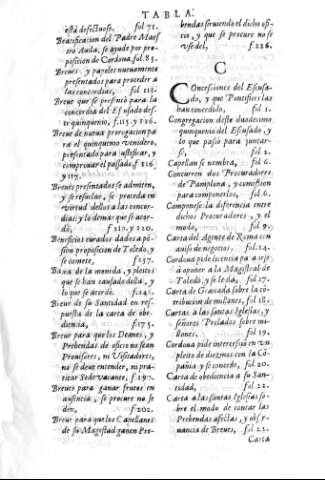 TABLA.
està defectuoso, fol 71.
Beatificacion del Padre Maes
tro Auila, se ayude por pro-
posicion de Cordoua, fol. 85.
Breues y papeles nueuamente
presentados para proceder a
las concordias, fol 112.
Breue que se presentò para la
concordia del Escusado des-
te quinquenio, f. 115. y 116.
Breue de nueua prorogacion pa
ra el quinquenio venidero,
presentado para justificar, y
comprouar el passado, f 116
y 117.
Breues presentados se admiten,
y se resuelue, se proceda en
virtud dellos à las concor-
dias; y lo demas que se acor-
dò, f 119. y 120.
Beneficios curados dados a pē-
sion proposicion de Toledo, y
se comete, f 137.
Baxa de la moneda, y pleitos
que se han causado della, y
lo que se acordò. f. 142.
Breue de su Santidad en res-
puesta de la carta de obe-
diencia, f 175.
Breue para que los Deanes, y
Prebendas de oficio no sean
Prouisores, ni Visitadores,
no se deue entender, ni pra-
ticar Sede vacante, f. 197.
Breues para ganar frutos en
ausencia, se procure no se
den, f 202.
Breue para que los Capellanes
de su Magestad ganen Pre-
bendas siruiendo el dicho ofi-
cio, y que se procure no se
vse del, f 226.
C
Concesiones del Escusa-
do, y que Pontifices las
han concedido, fol 1.
Congregacion deste duodecimo
quinquenio del Escusado, y
lo que passò para juntar-
se, fol 2.
Capellan se nombra, fol 6.
Concurren dos Procuradores
de Pamplona, y cometiose
para componerlos, fol 6.
Componese la diferencia entre
dichos Procuradores, y el
modo, fol 9.
Carta del Agente de Roma con
auiso de negocios, fol. 14.
Cordoua pide licencia para ir
à oponer a la Magistral de
Toledo, y se le da, fol 17.
Carta de Granada sobre la cō-
tribucion de millones, fol 18.
Cartas a las santas Iglesias, y
señores Prelados sobre mi-
llones, fol 19.
Cordoua pide intercesiō en vn
pleito de diezmos con la Cō-
pañia, y se concede, fol 20.
Carta de obediencia a su San-
tidad, fol 22.
Carta a las santas Iglesias so-
bre el modo de contar las
Prebendas afectas, y obser-
uancia de Breues, fol 23.
Carta